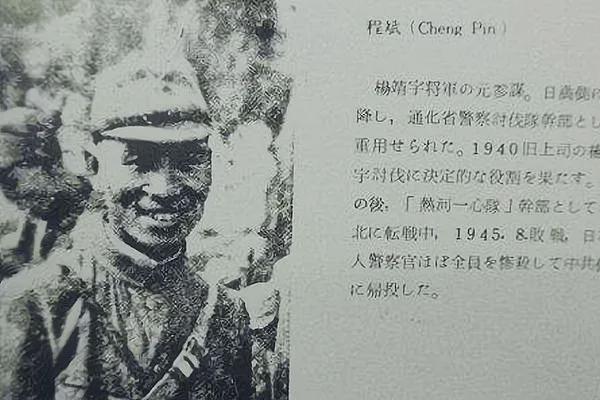 程斌 (Cheng Pin)
楊靖宇将軍の元参謀。日満側に
降し，通化省警察討伐隊幹部とし
重用せられた。1940旧上司の楊
宇討伐に決定的な役割を果たす。
の後，「熱河一心隊」幹部として
北に転戦中，1945.8.敗戦，日
人警察官ほぼ全員を惨殺して中共
に帰投した。